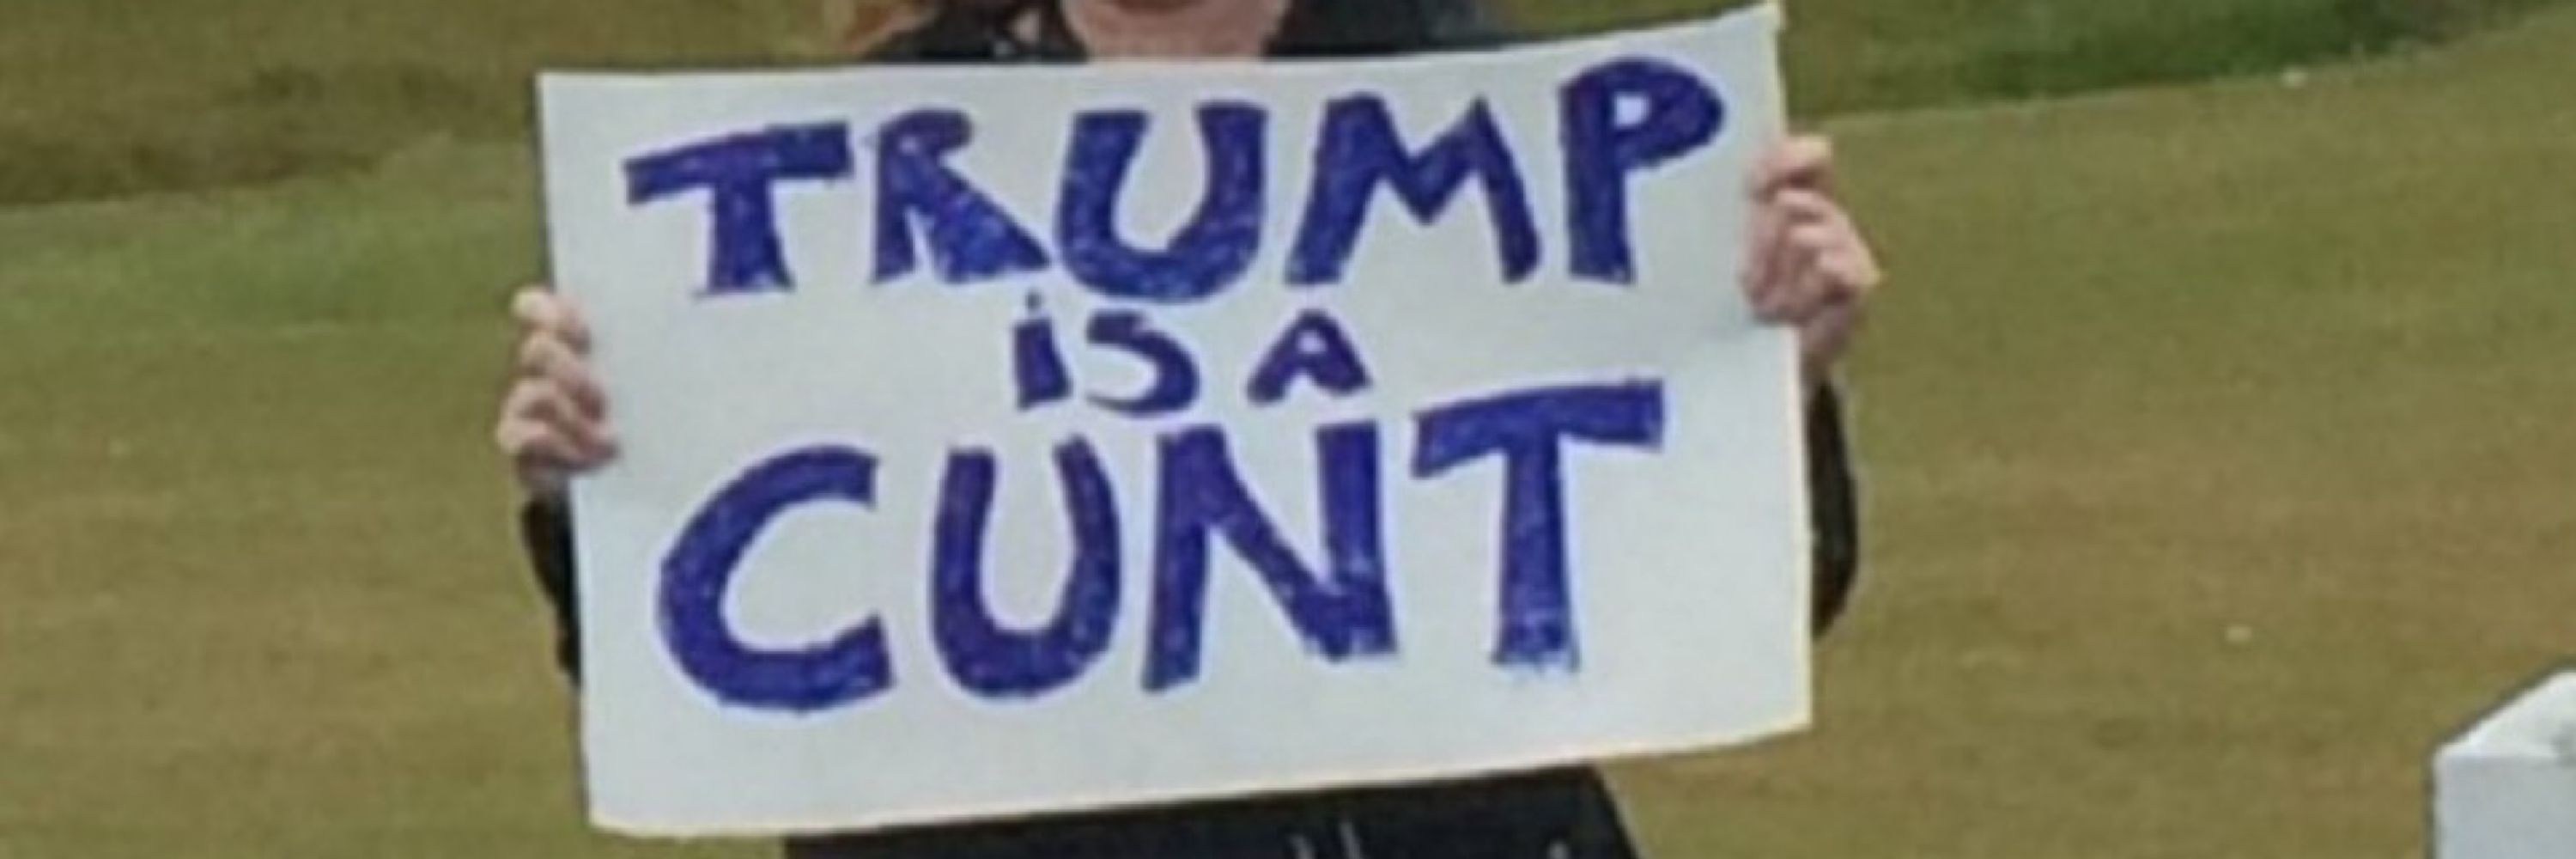 TRUMP
iS A
CUNT